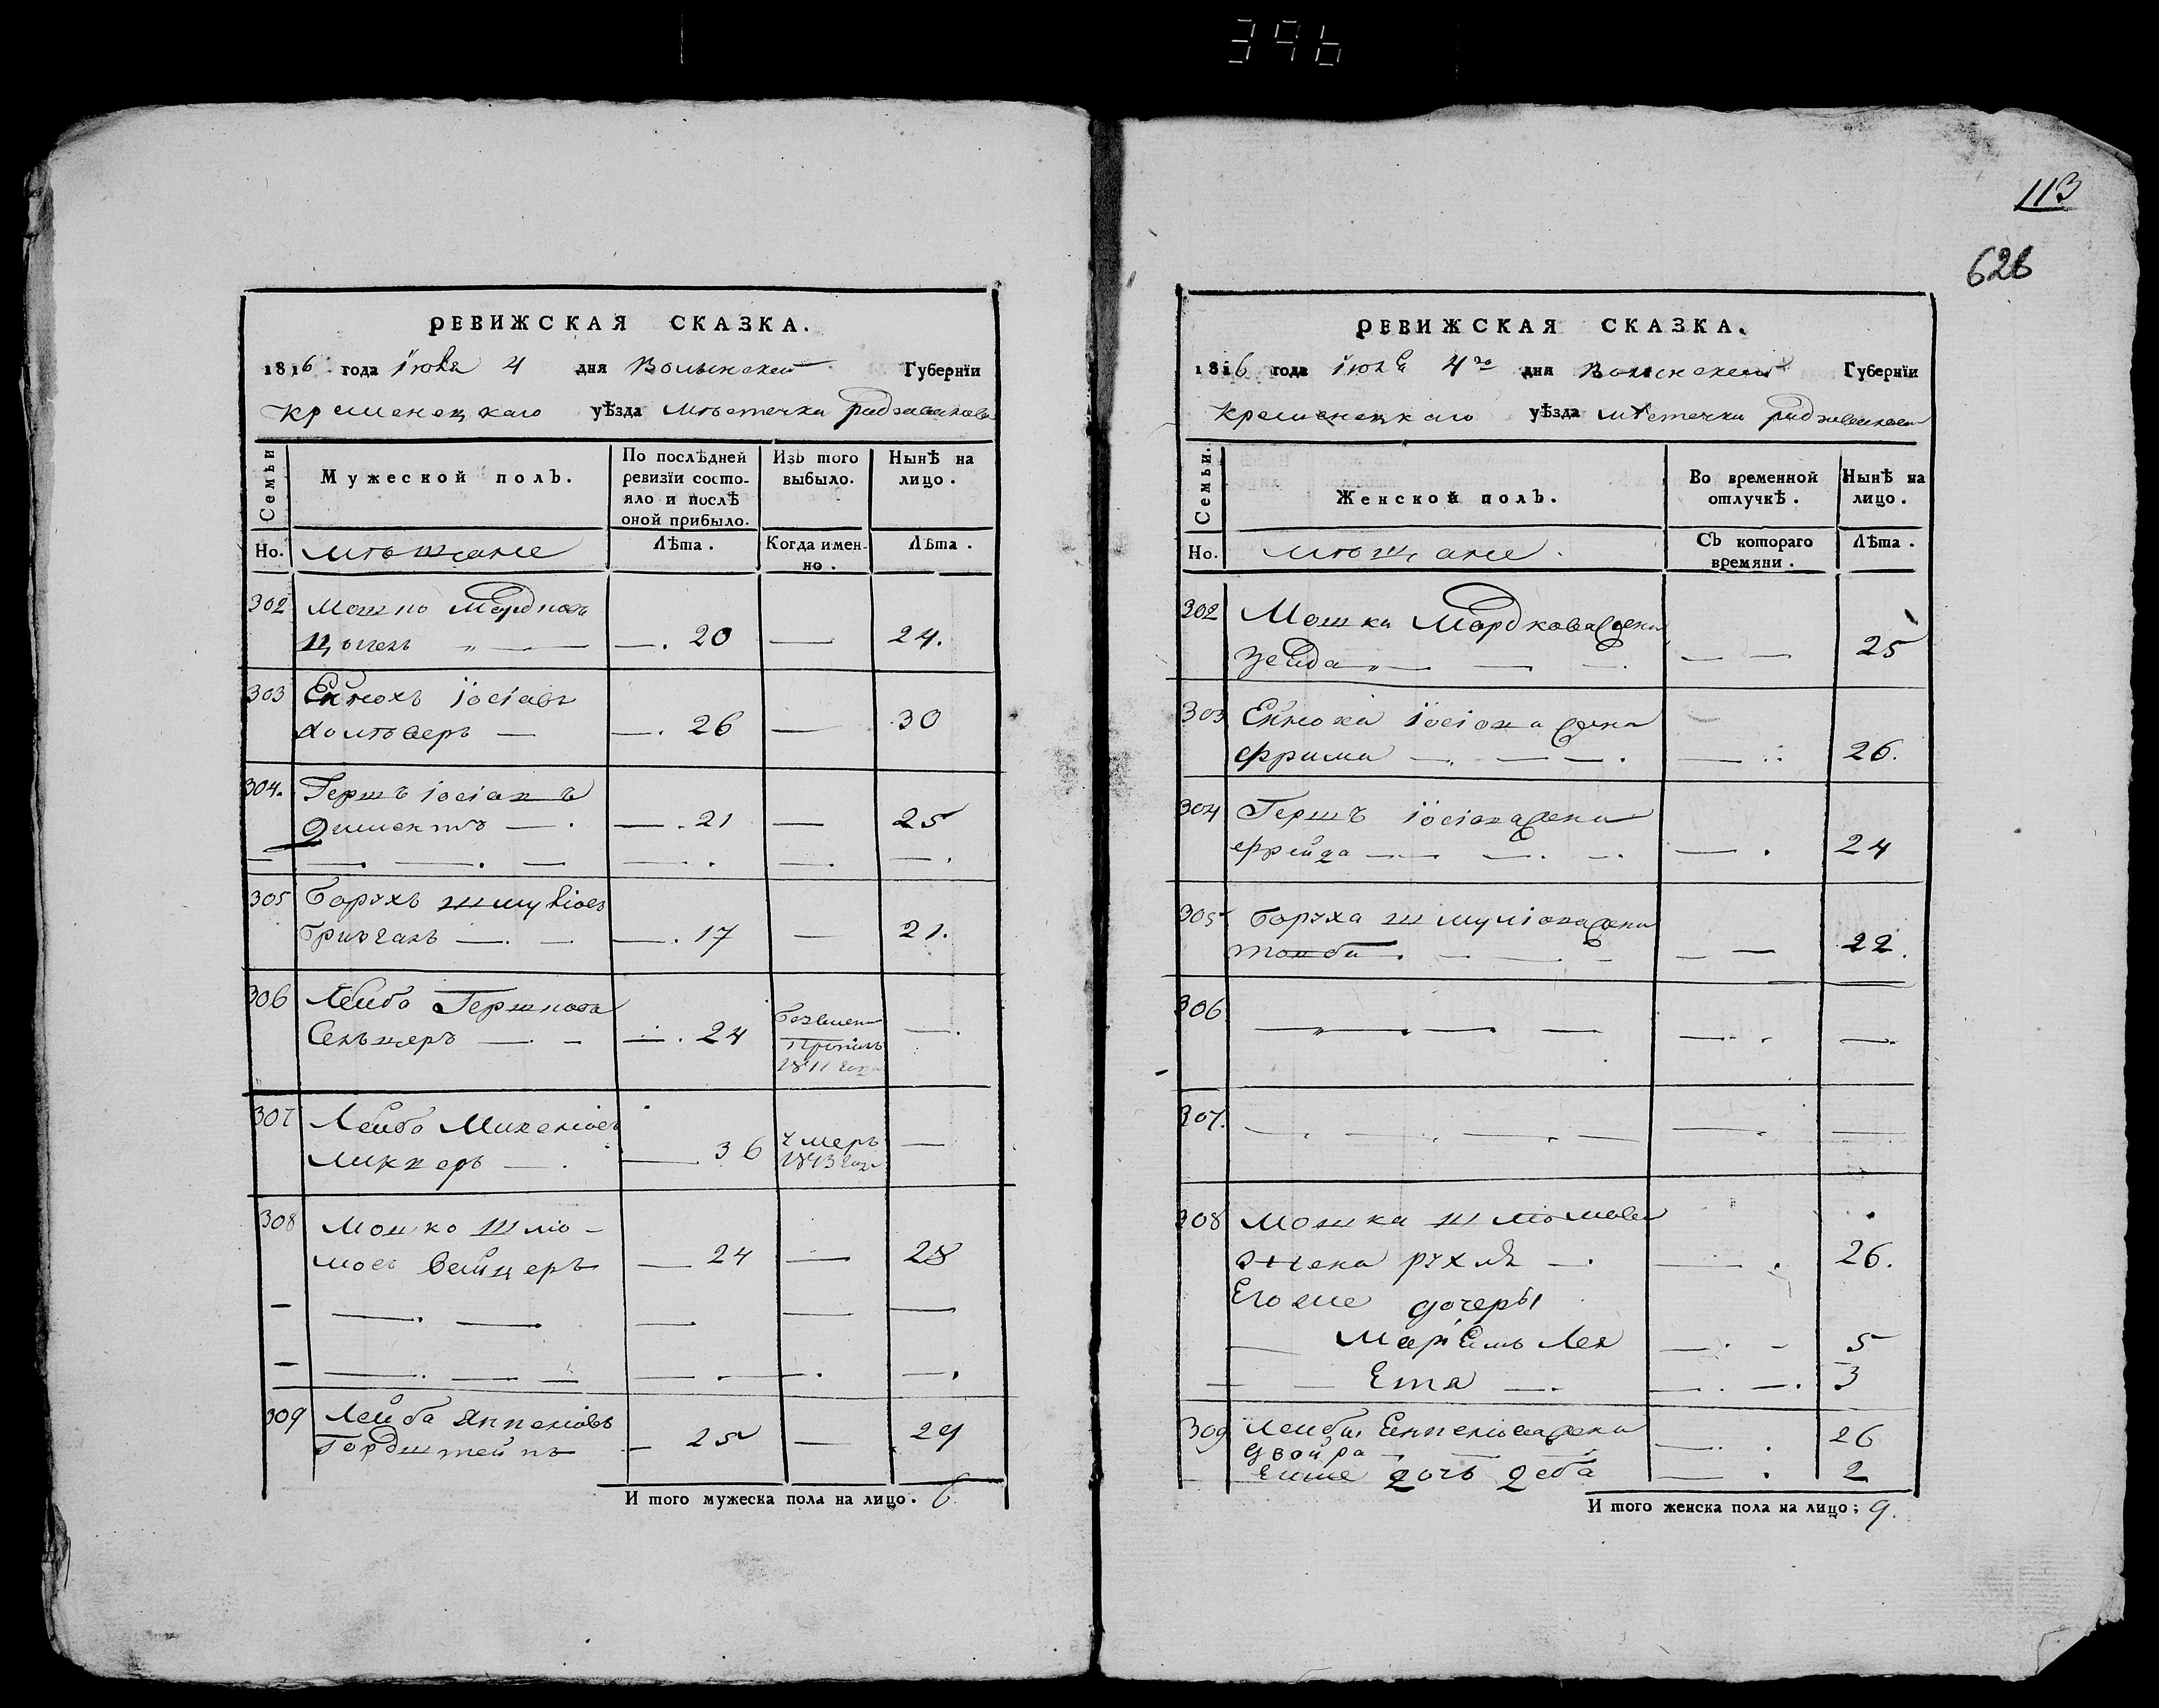 396
113
626
РЕВИЖСКАЯ СКАЗКА.
1816 года Іюня 4 дня Волынской Губернїи
Кременецкаго уѣзда мѣстечка радзивилова
Семьи
Мужеской полъ.
По послѣдней ревизїи состояло и послѣ оной прибыло.
Изъ того выбыло.
Нынѣ на лицо.
Но. мѣщане
Лѣта.
Когда именно.
Лѣта.
302 Мошко Мордковъ
— 20 — 24.
303 Ейнохъ Іосіовъ
— 26 — 30
304. Гершъ іосіовъ
Диментъ — 21 — 25
305 Борухъ шмуліовъ
— 17 — 21.
306 Лейба Гершкова
— 24
1811 года
307 Лейба
— 36 умеръ —
1813 года
308 Мошко Шлио-
мовъ Вейцеръ — 24 — 28
309 Лейба Янкеліовъ
Гордштейнъ — 25 — 29
И того мужеска пола на лицо. 6
РЕВИЖСКАЯ СКАЗКА.
1816 года Іюня 4го дня Волынской Губернїи
Кременецкаго уѣзда мѣстечка радзивилова
Семьи.
Женской полъ.
Во временной отлучкѣ.
Нынѣ на лицо.
Но. мѣщане.
Съ котораго времяни.
Лѣта.
302 Мошка Мордкова жена
Зейда — — 25
303 Ейноха іосіова жена
Фрима — — 26.
304 Гершъ іосіова жена
Фрейда — — 24
305 Боруха шмуліова жена
— — 22.
306 — — —
307. — — —
308 Мошка шлиомова
жена рухлѣ — — 26.
Его же дочеры
Маріемъ Лея — 5
Етя — 3
309 Лейбы Енкеліова жена
Двойра — 26
Егоже дочь Деба — 2
И того женска пола на лицо; 9.